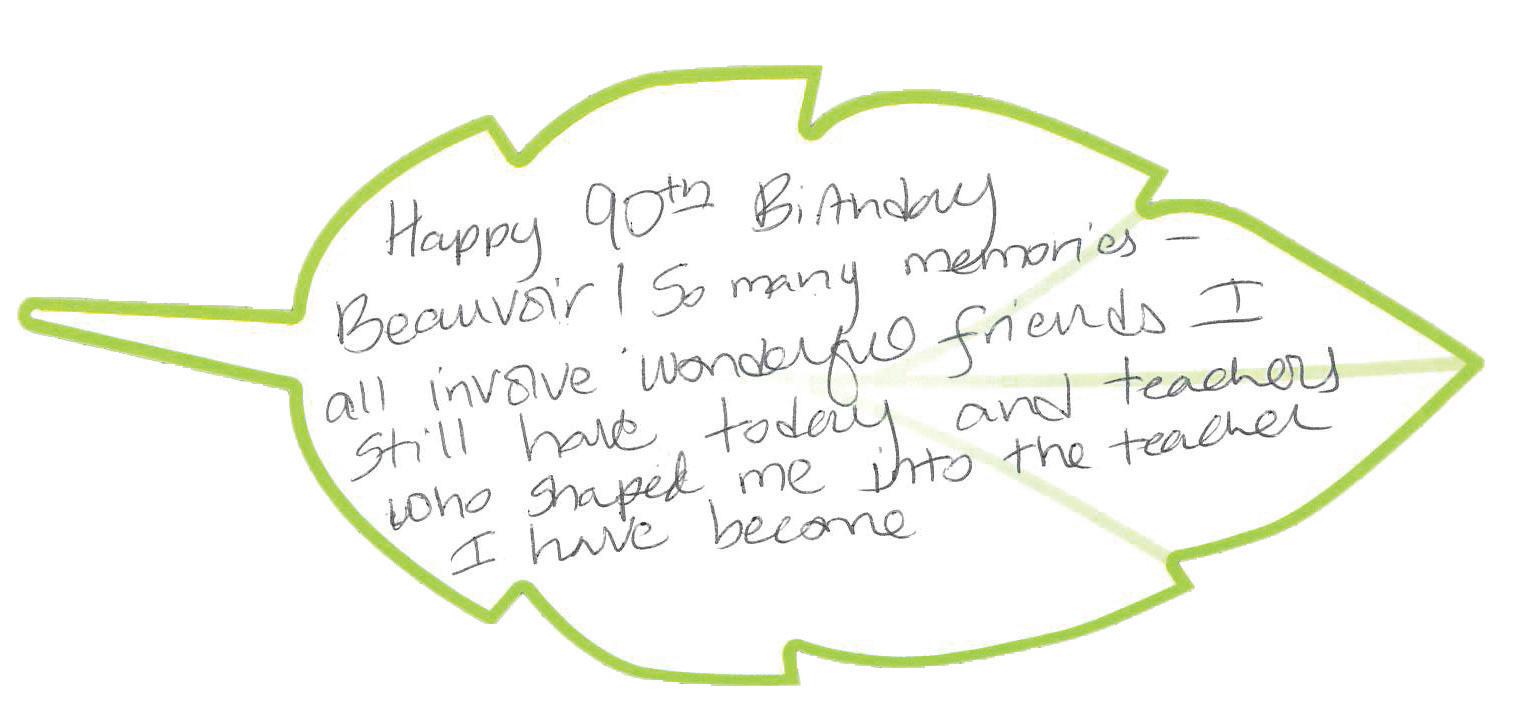 Happy 90th Birthday
Beauvoir! So many memories -
all involve wonderful friends I
still have today and teachers
who shaped me into the teacher
I have become